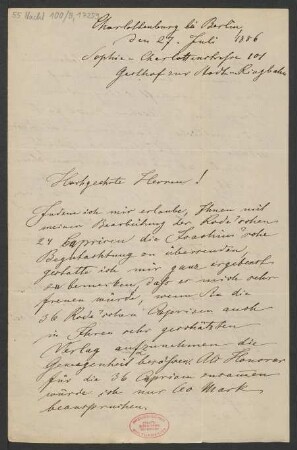 55 Nachl 100/B,
Charlottenburg bei Berlin,
den 27. Juli 1886
Sophie-Charlottenstrasse 101
Gasthof zur Stadt-Ringbahn
Hochgeehrte Herren!
Indem ich mir erlaube, Ihnen mit
meiner Bearbeitung der Rode'schen
24 Capricen die Joachim'sche
Begutachtung zu übersenden,
gestatte ich mir ganz ergebenst
zu bemerken, dass es mich sehr
freuen würde, wenn Sie die
36 Capricen auch
in Ihren sehr geschätzten
Verlag aufzunehmen die
Gewogenheit besässen. Als Honorar
für die 36 Capricen zusamen
würde ich nur 60 Mark
beanspruchen.